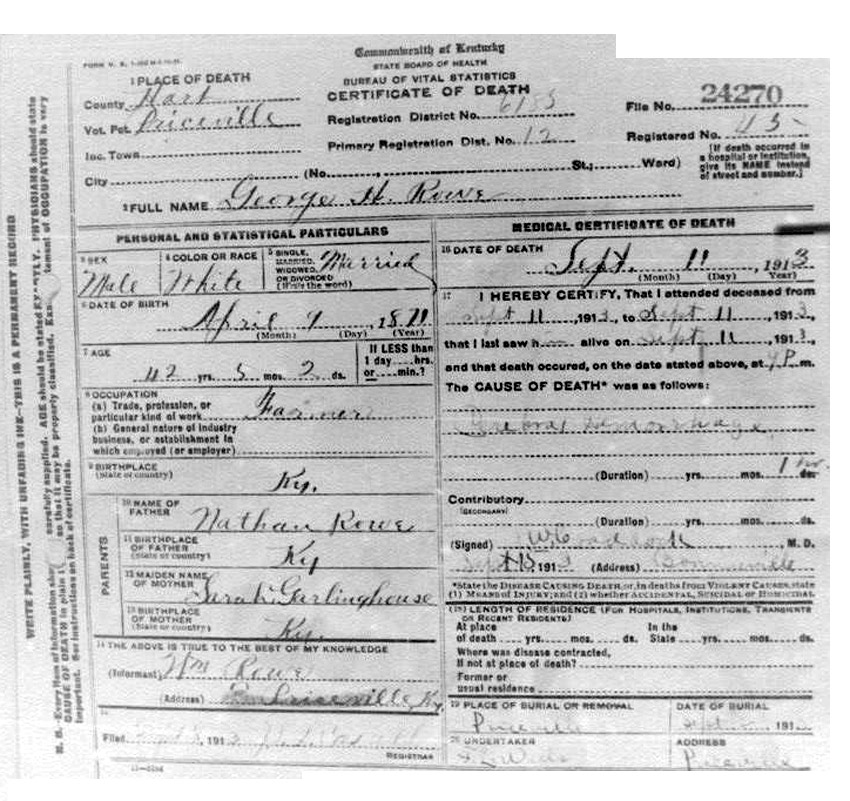 FORM V. S.
Commonwealth of Kentucky
STATE BOARD OF HEALTH
BUREAU OF VITAL STATISTICS
CERTIFICATE OF DEATH
1 PLACE OF DEATH
County Hart
Vot. Pct. Priceville
Inc. Town
City
Registration District No. 6185
Primary Registration Dist. No. 12
File No. 24270
Registered No. 43
(No. St.; Ward)
(If death occurred in a hospital or institution, give its NAME instead of street and number.)
2 FULL NAME George H. Rowe
PERSONAL AND STATISTICAL PARTICULARS
3 SEX Male
4 COLOR OR RACE White
5 SINGLE, MARRIED, WIDOWED, OR DIVORCED (Write the word) Married
6 DATE OF BIRTH April 9, 1871
(Month) (Day) (Year)
7 AGE
42 yrs. 5 mos. 2 ds.
If LESS than 1 day hrs. or min.?
8 OCCUPATION
(a) Trade, profession, or particular kind of work Farmer
(b) General nature of industry business, or establishment in which employed (or employer)
9 BIRTHPLACE
(State or country) Ky.
PARENTS
10 NAME OF FATHER Nathan Rowe
11 BIRTHPLACE OF FATHER (State or country) Ky
12 MAIDEN NAME OF MOTHER Sarah Garlinghouse
13 BIRTHPLACE OF MOTHER (State or country) Ky.
14 THE ABOVE IS TRUE TO THE BEST OF MY KNOWLEDGE
(Informant) Wm Rowe
(Address) Priceville, Ky.
15
Filed 191
REGISTRAR
MEDICAL CERTIFICATE OF DEATH
16 DATE OF DEATH Sept. 11, 1913
(Month) (Day) (Year)
17 I HEREBY CERTIFY, That I attended deceased from
Sept 11, 1913, to Sept 11, 1913,
that I last saw h alive on Sept 11, 1913,
and that death occured, on the date stated above, at P.m.
The CAUSE OF DEATH* was as follows:
Cerebral Hemorrhage
(Duration) yrs. mos. 1 ds.
Contributory
(SECONDARY)
(Duration) yrs. mos. ds.
(Signed) M. D.
Sept 191 (Address)
*State the DISEASE CAUSING DEATH, or, in deaths from VIOLENT CAUSES, state
(1) MEANS OF INJURY; and (2) whether ACCIDENTAL, SUICIDAL OR HOMICIDAL
(18) LENGTH OF RESIDENCE (FOR HOSPITALS, INSTITUTIONS, TRANSIENTS
OR RECENT RESIDENTS)
At place of death yrs. mos. ds. In the State yrs. mos. ds.
Where was disease contracted,
If not at place of death?
Former or
usual residence
19 PLACE OF BURIAL OR REMOVAL Priceville
DATE OF BURIAL Sept 191
20 UNDERTAKER
ADDRESS Priceville
WRITE PLAINLY, WITH UNFADING INK—THIS IS A PERMANENT RECORD
N. B.—Every item of information carefully supplied. AGE should be stated EXACTLY. PHYSICIANS should state
CAUSE OF DEATH in plain so that it may be properly classified. statement of OCCUPATION is very
important. See instructions on back of certificate.